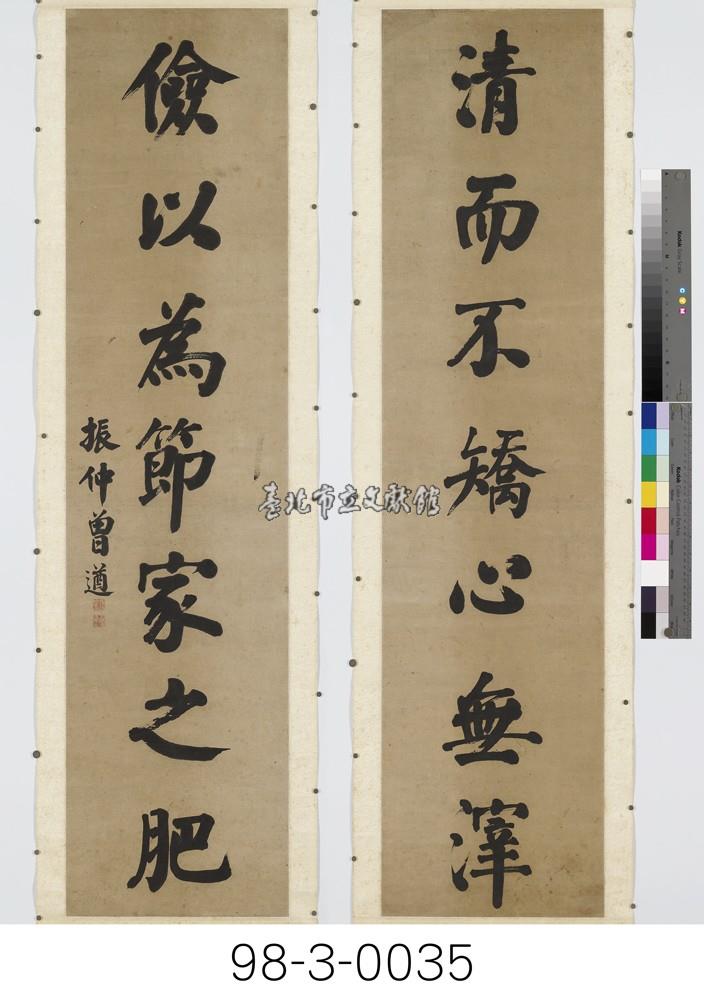 清而不矯心無滓
儉以為節家之肥
振仲曾遒
臺北市立文獻館
98-3-0035